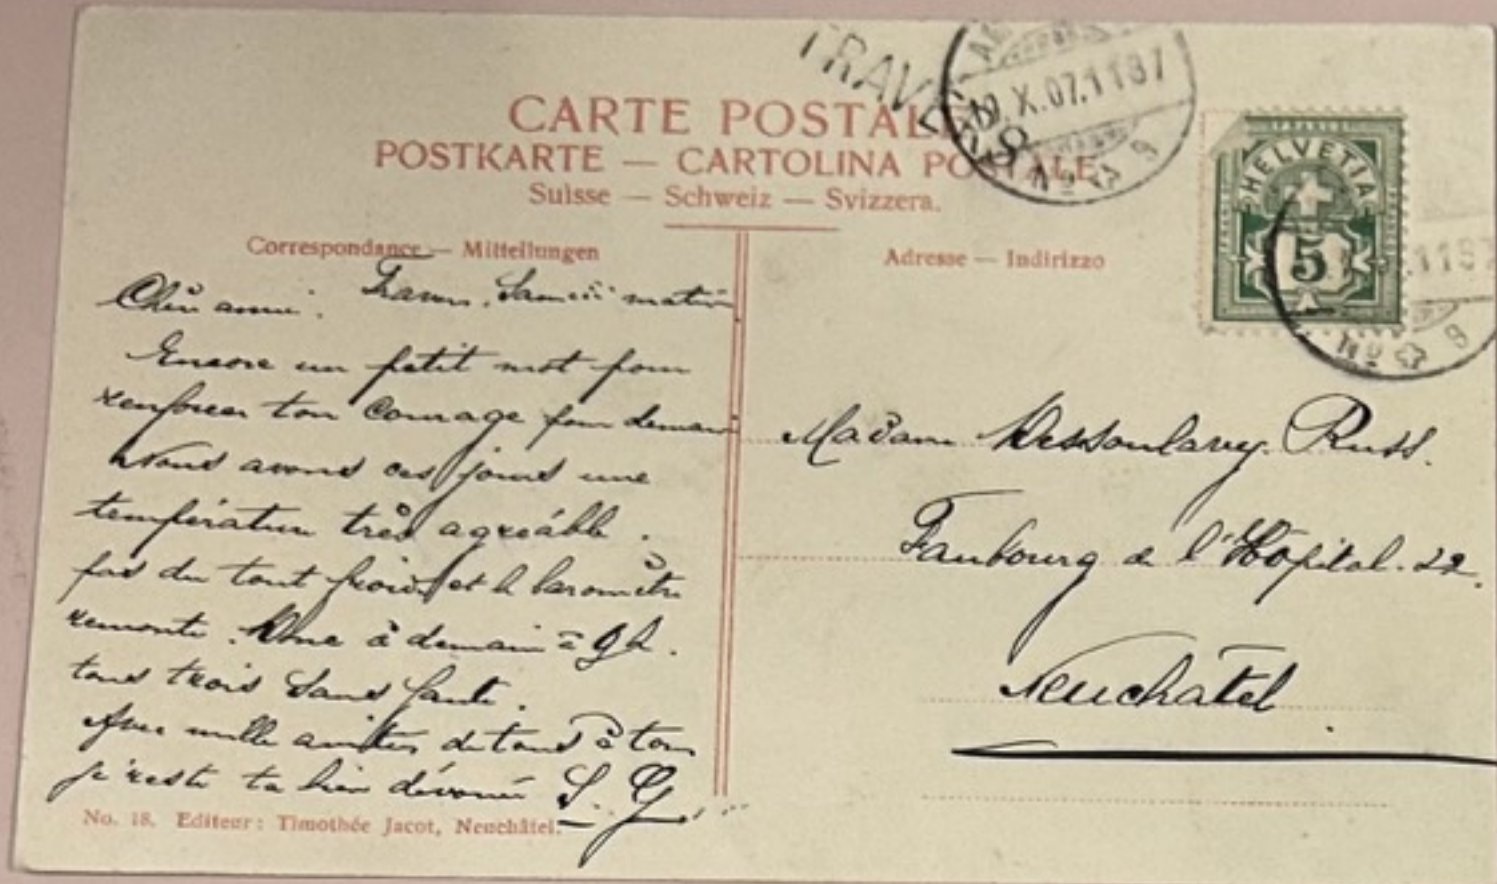 TRAVERS
AM
.X.07.11
No 9
CARTE POSTALE
POSTKARTE — CARTOLINA POSTALE
Suisse — Schweiz — Svizzera.
Correspondance — Mitteilungen
Adresse — Indirizzo
HELVETIA
5
No 9
Chère amie. Travers, Samedi matin
Encore un petit mot pour
renforcer ton courage pour demain
Nous avons ces jours une
température très agréable.
pas du tout froid et le baromètre
remonte. Donc à demain à 9 h.
tous trois sans faute.
Avec mille amitiés de tous à tous
je reste ta bien dévouée S. G.
Madame Dessoulavy-Russ.
Faubourg de l'Hôpital. 22.
Neuchâtel
No. 18. Editeur: Timothée Jacot, Neuchâtel.